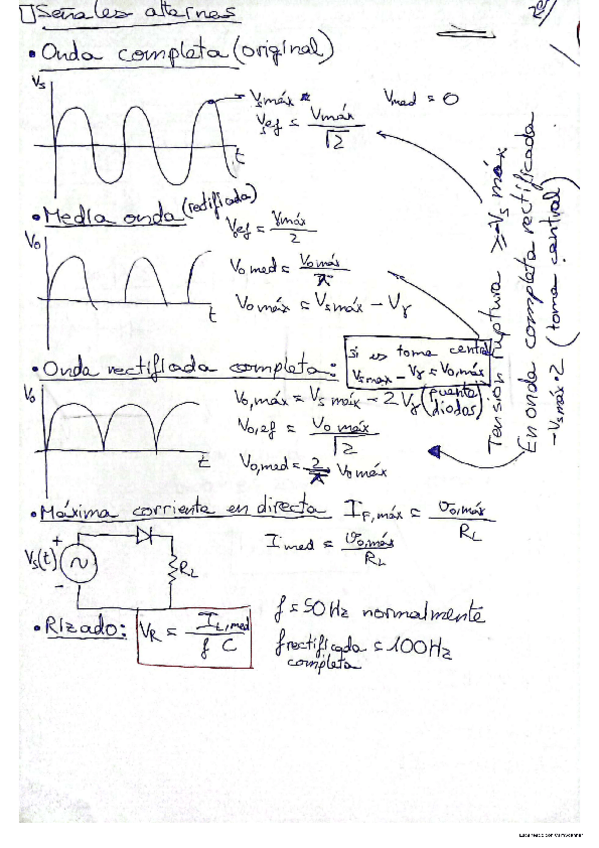 Señales alternas
• Onda completa (original)
Vs
Vsmáx
t
Vsef = Vmáx / √2
Vmed = 0
• Media onda (rectificada)
Vo
t
Vef = Vmáx / 2
Vo med = Vo máx / π
Vo máx = Vs máx - Vγ
• Onda rectificada completa:
si es toma central
Vsmax - Vγ = Vo,máx
Vo
t
Vo,máx = Vs máx - 2Vγ (puente diodos)
Vo,ef = Vo máx / √2
Vo,med = 2/π Vo máx
Tensión ruptura ≥ -Vs máx
En onda completa rectificada
-Vsmáx·2 (toma central)
• Máxima corriente en directa IF,máx = vo,máx / RL
Vs(t)
+
-
RL
Imed = vo,máx / RL
• Rizado: VR = IL,med / f C
f = 50Hz normalmente
f rectificada = 100Hz
completa